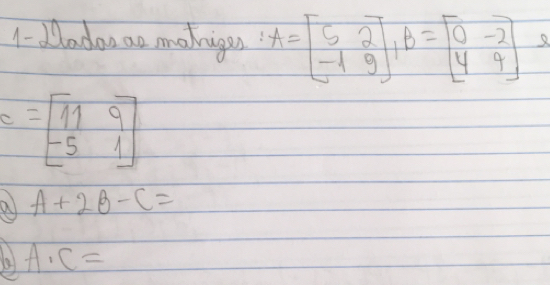 1- Dadas as matrizes : A = [5 2], B = [0 -2] e
[-1 9] [4 4]
C = [11 9]
[-5 1]
a) A + 2B - C =
b) A . C =